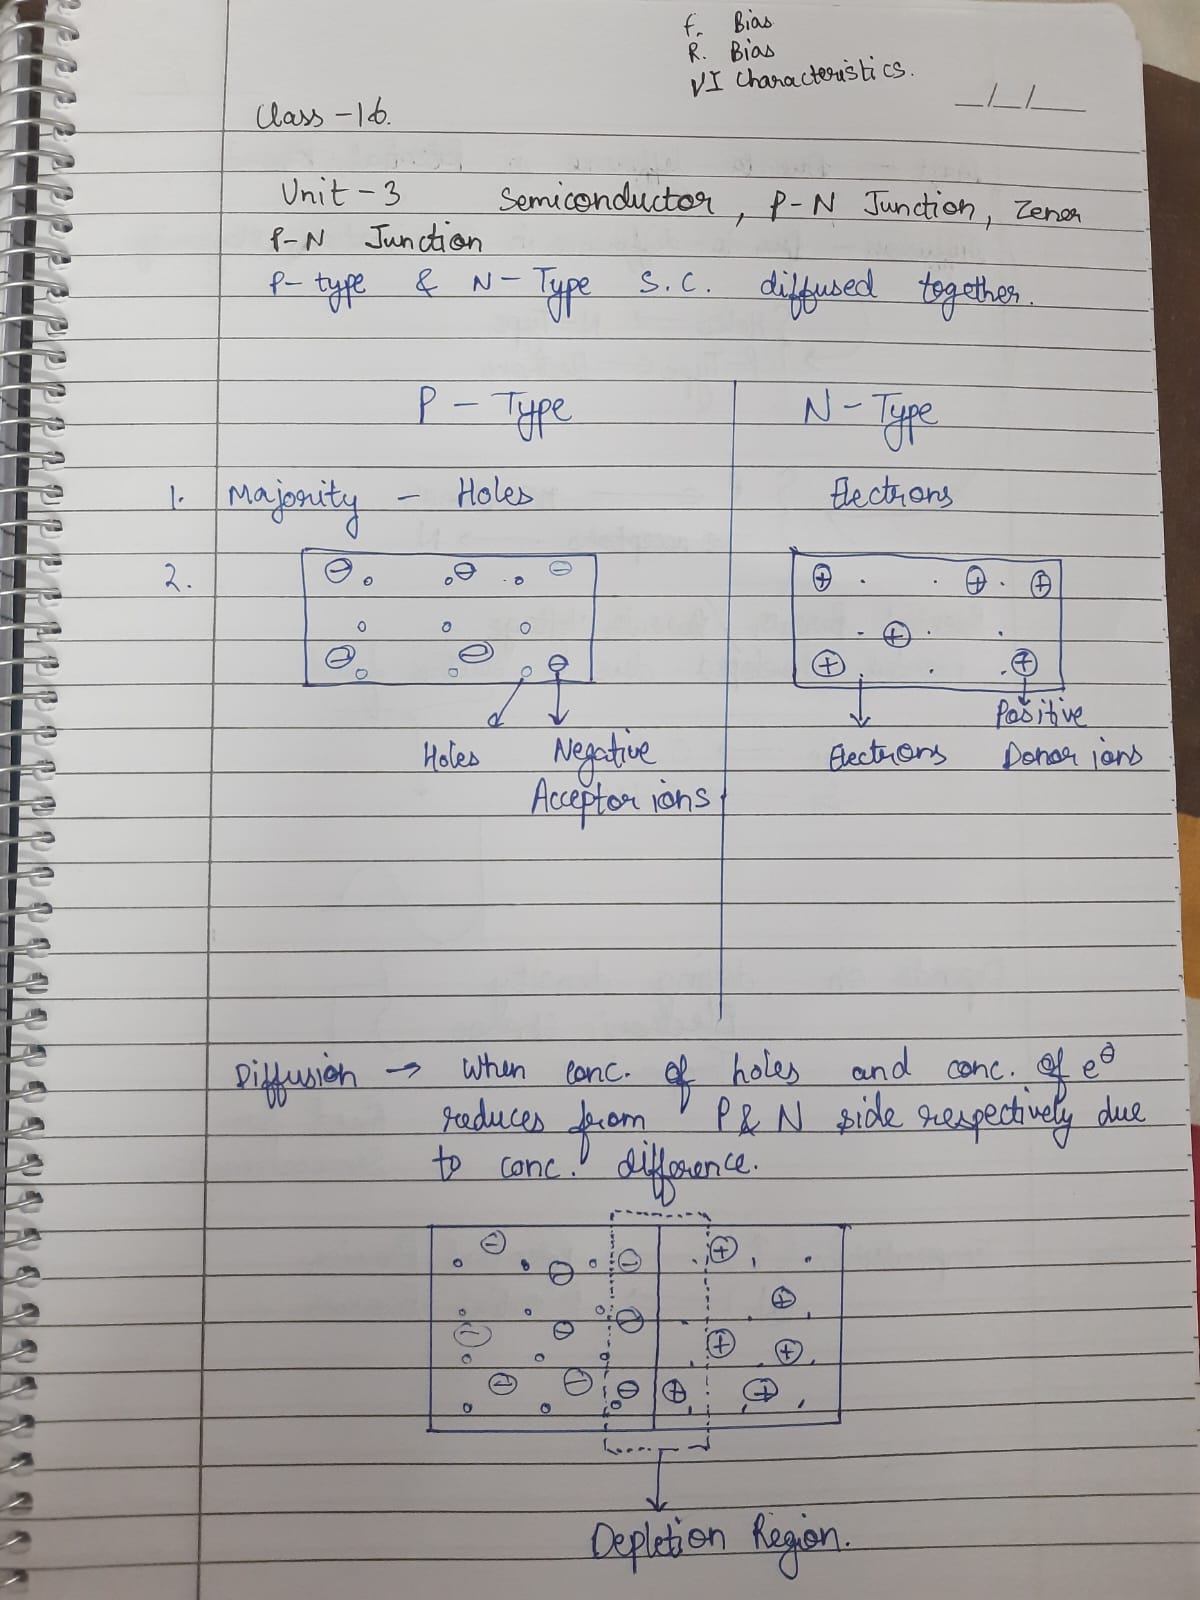 F. Bias
R. Bias
VI Characteristics.
_/_/_
Class - 16.
Unit - 3 Semiconductor, P-N Junction, Zener
P-N Junction
P-type & N-Type S.C. diffused together.
P - Type N - Type
1. Majority - Holes Electrons
2.
Positive
Holes Negative Electrons Donor ions
Acceptor ions
Diffusion → When conc. of holes and conc. of e⊖
reduces from P & N side respectively due
to conc. difference.
Depletion Region.